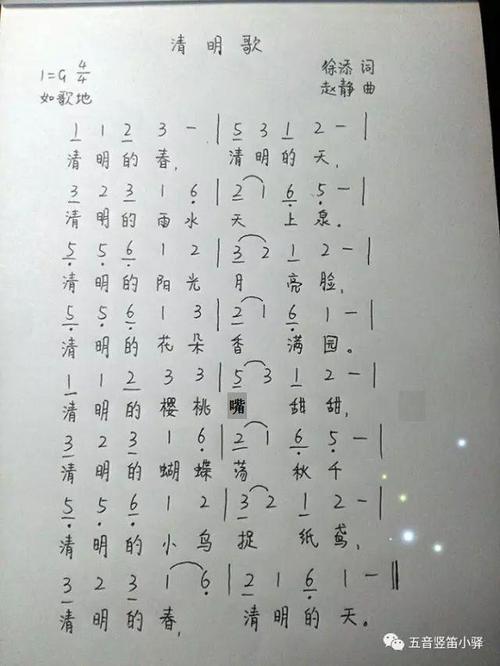 清明歌
1=G 4/4 徐添 词
如歌地 赵静 曲
1 1 2 3 - | 5 3 1 2 - |
清明的春, 清明的天,
3 2 3 1 6 | 2 1 6 5 - |
清明的雨水 天上泉。
5 5 6 1 2 | 3 2 1 2 - |
清明的阳光 月亮脸,
5 5 6 1 3 | 2 1 6 1 - |
清明的花朵 香满园。
1 1 2 3 3 | 5 3 1 2 - |
清明的樱桃 嘴甜甜,
3 2 3 1 6 | 2 1 6 5 - |
清明的蝴蝶 荡秋千
5 5 6 1 2 | 3 2 1 2 - |
清明的小鸟 捉纸鸢,
3 2 3 1 6 | 2 1 6 1 - ‖
清明的春, 清明的天。
五音竖笛小驿